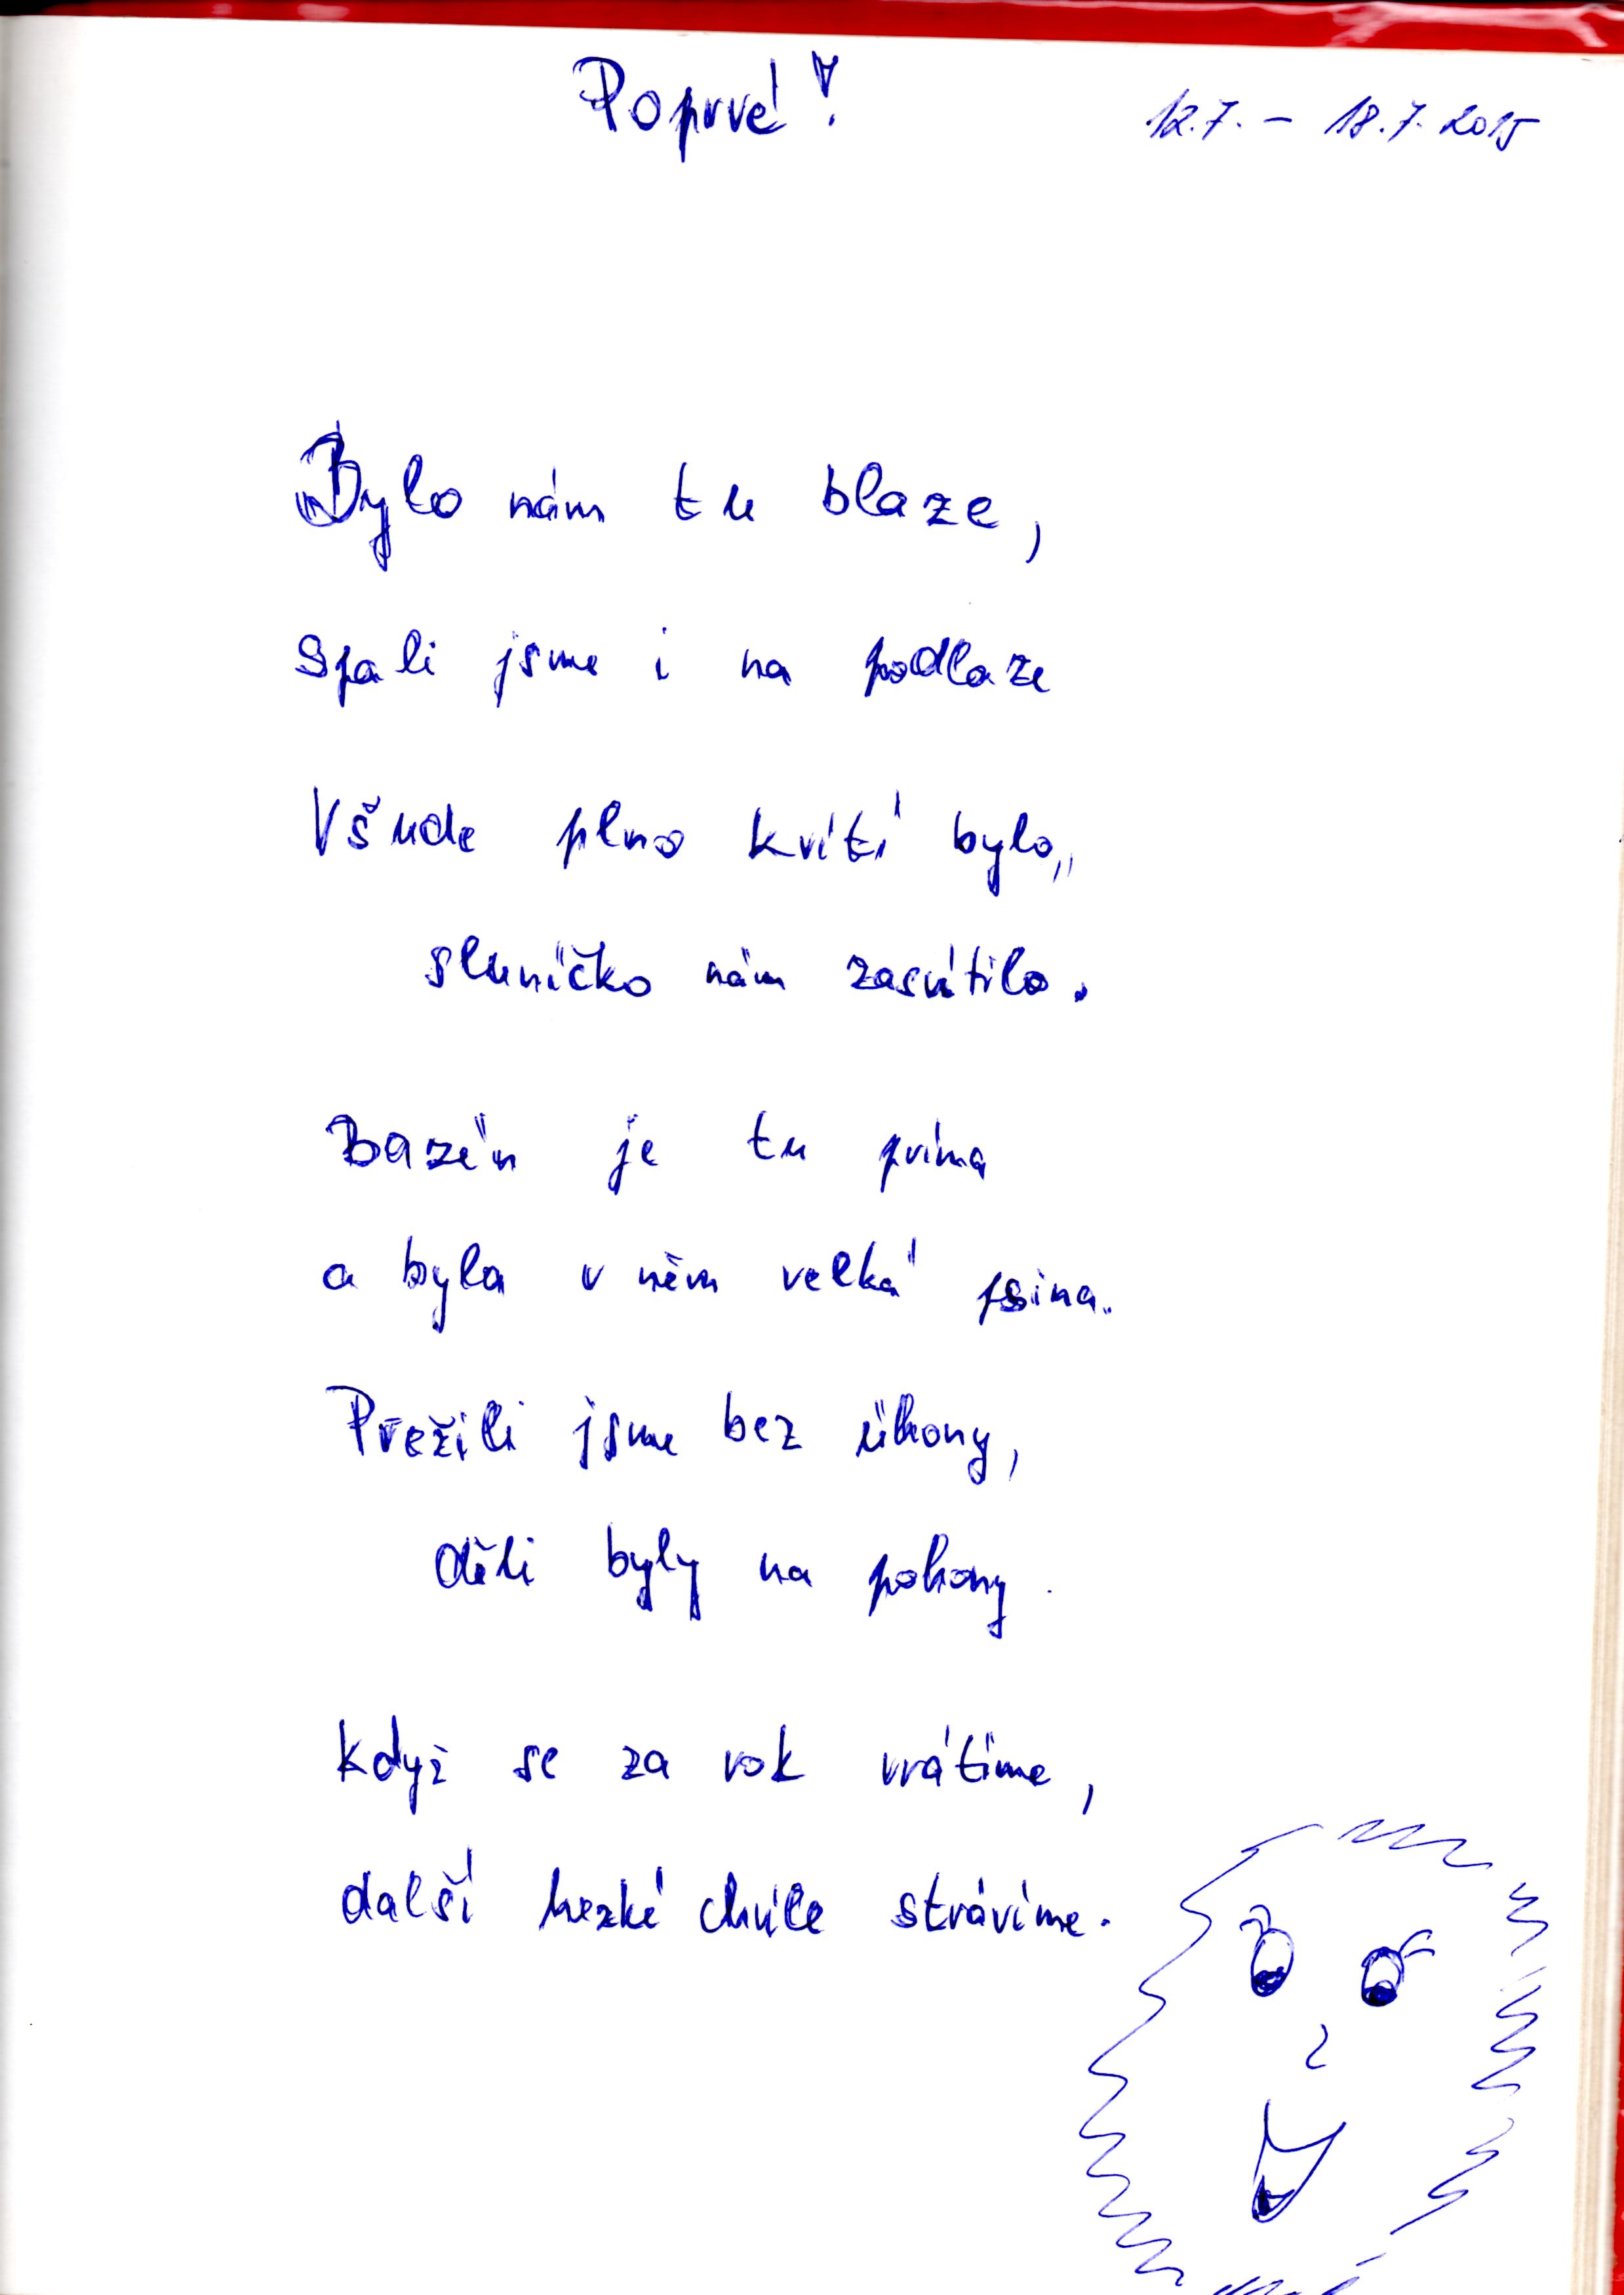 Poprvé!
12.7. – 18.7. 2015
Bylo nám tu blaze,
Spali jsme i na podlaze
Všude plno kvítí bylo,,
sluníčko nám zasvítilo.
Bazén je tu prima
a byla v něm velká psina.
Přežili jsme bez úhony,
děti byly na pohony.
Když se za rok vrátíme,
další hezké chvíle strávíme.